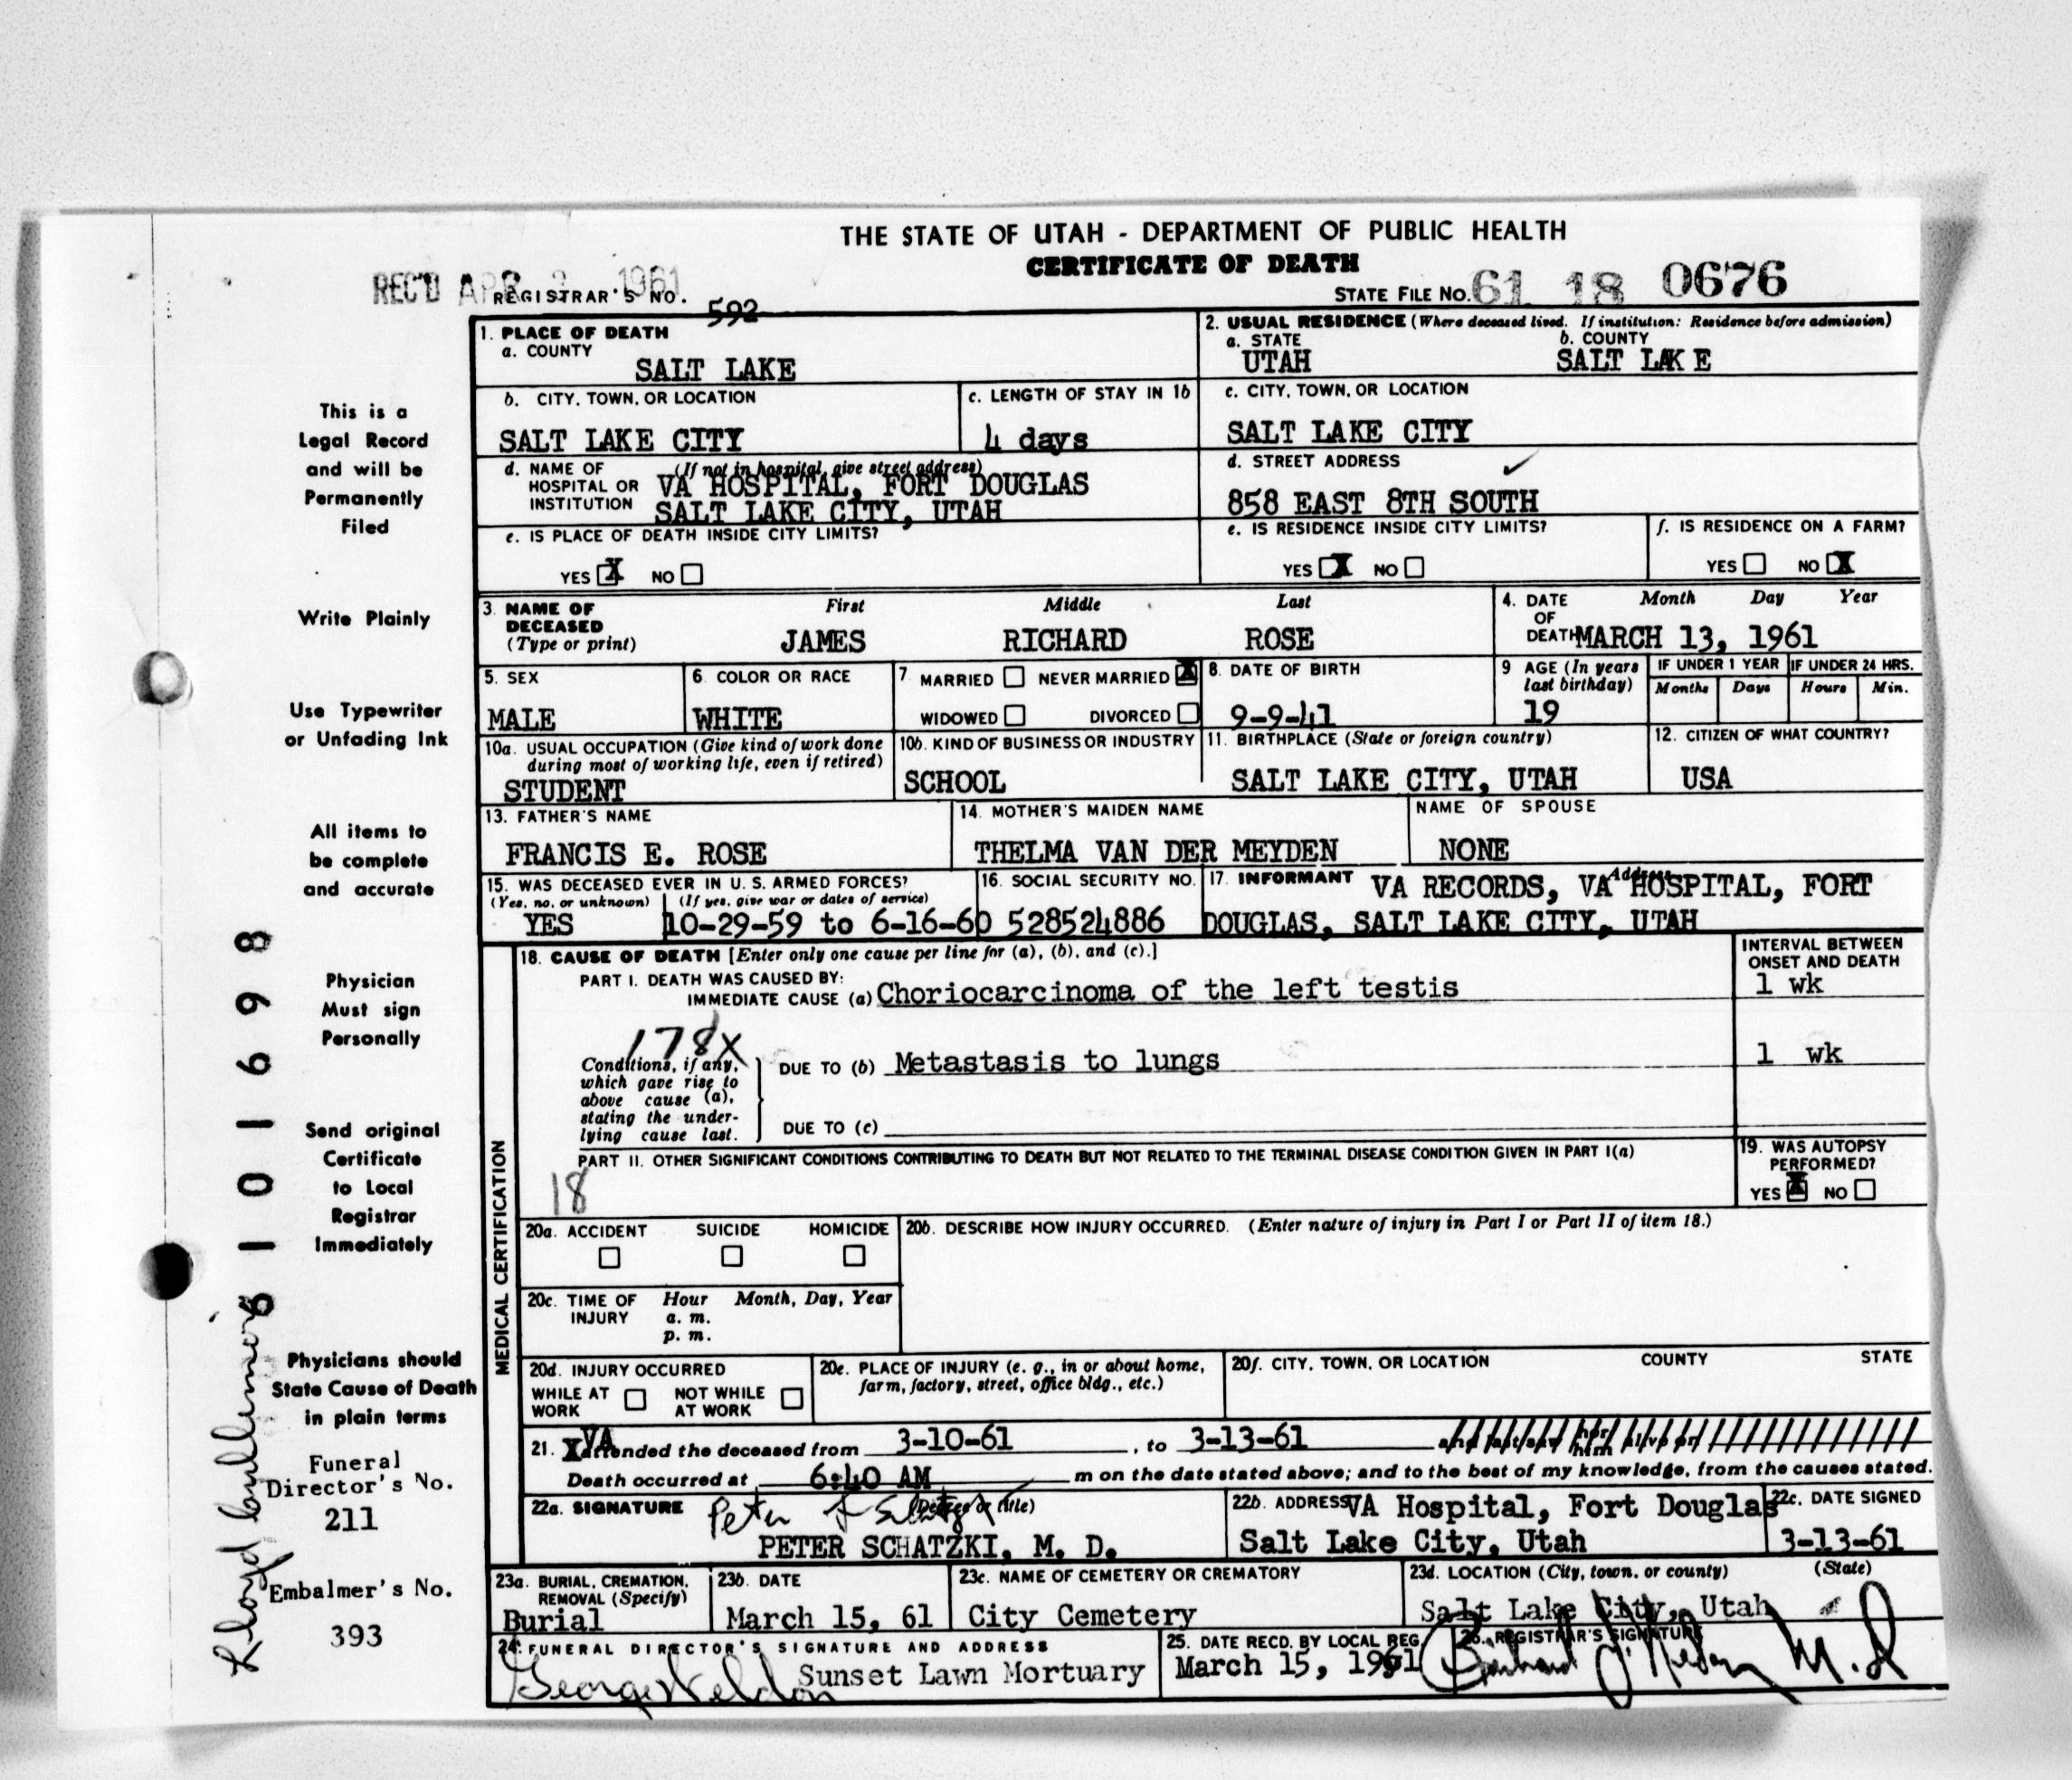 THE STATE OF UTAH - DEPARTMENT OF PUBLIC HEALTH
CERTIFICATE OF DEATH
REC'D APR 1961
REGISTRAR'S NO. 592
STATE FILE NO. 61 18 0676
1. PLACE OF DEATH
a. COUNTY
SALT LAKE
2. USUAL RESIDENCE (Where deceased lived. If institution: Residence before admission)
a. STATE b. COUNTY
UTAH SALT LAKE
b. CITY, TOWN, OR LOCATION
SALT LAKE CITY
c. LENGTH OF STAY IN 1b
4 days
c. CITY, TOWN, OR LOCATION
SALT LAKE CITY
d. NAME OF HOSPITAL OR INSTITUTION
(If not in hospital, give street address)
VA HOSPITAL, FORT DOUGLAS
SALT LAKE CITY, UTAH
d. STREET ADDRESS
858 EAST 8TH SOUTH
e. IS PLACE OF DEATH INSIDE CITY LIMITS?
YES X NO
e. IS RESIDENCE INSIDE CITY LIMITS?
YES X NO
f. IS RESIDENCE ON A FARM?
YES NO X
3. NAME OF DECEASED
(Type or print)
First Middle Last
JAMES RICHARD ROSE
4. DATE OF DEATH
Month Day Year
MARCH 13, 1961
5. SEX
MALE
6. COLOR OR RACE
WHITE
7. MARRIED NEVER MARRIED X
WIDOWED DIVORCED
8. DATE OF BIRTH
9-9-41
9 AGE (In years last birthday)
19
IF UNDER 1 YEAR
Months Days
IF UNDER 24 HRS.
Hours Min.
10a. USUAL OCCUPATION (Give kind of work done during most of working life, even if retired)
STUDENT
10b. KIND OF BUSINESS OR INDUSTRY
SCHOOL
11. BIRTHPLACE (State or foreign country)
SALT LAKE CITY, UTAH
12. CITIZEN OF WHAT COUNTRY?
USA
13. FATHER'S NAME
FRANCIS E. ROSE
14. MOTHER'S MAIDEN NAME
THELMA VAN DER MEYDEN
NAME OF SPOUSE
NONE
15. WAS DECEASED EVER IN U. S. ARMED FORCES?
(Yes, no, or unknown) (If yes, give war or dates of service)
YES 10-29-59 to 6-16-60
16. SOCIAL SECURITY NO.
528524886
17. INFORMANT Address
VA RECORDS, VA HOSPITAL, FORT
DOUGLAS, SALT LAKE CITY, UTAH
MEDICAL CERTIFICATION
18. CAUSE OF DEATH [Enter only one cause per line for (a), (b), and (c).]
INTERVAL BETWEEN ONSET AND DEATH
PART I. DEATH WAS CAUSED BY:
IMMEDIATE CAUSE (a) Choriocarcinoma of the left testis 1 wk
178X
Conditions, if any, which gave rise to above cause (a), stating the underlying cause last.
DUE TO (b) Metastasis to lungs 1 wk
DUE TO (c)
PART II. OTHER SIGNIFICANT CONDITIONS CONTRIBUTING TO DEATH BUT NOT RELATED TO THE TERMINAL DISEASE CONDITION GIVEN IN PART I(a)
18
19. WAS AUTOPSY PERFORMED?
YES X NO
20a. ACCIDENT SUICIDE HOMICIDE
20b. DESCRIBE HOW INJURY OCCURRED. (Enter nature of injury in Part I or Part II of item 18.)
20c. TIME OF INJURY
Hour Month, Day, Year
a. m.
p. m.
20d. INJURY OCCURRED
WHILE AT WORK NOT WHILE AT WORK
20e. PLACE OF INJURY (e. g., in or about home, farm, factory, street, office bldg., etc.)
20f. CITY, TOWN, OR LOCATION COUNTY STATE
21. VA attended the deceased from 3-10-61, to 3-13-61 and last saw her him alive on
Death occurred at 6:40 AM m on the date stated above; and to the best of my knowledge, from the causes stated.
22a. SIGNATURE (Degree or title)
PETER SCHATZKI, M. D.
22b. ADDRESS
VA Hospital, Fort Douglas
Salt Lake City, Utah
22c. DATE SIGNED
3-13-61
23a. BURIAL, CREMATION, REMOVAL (Specify)
Burial
23b. DATE
March 15, 61
23c. NAME OF CEMETERY OR CREMATORY
City Cemetery
23d. LOCATION (City, town, or county) (State)
Salt Lake City, Utah
24. FUNERAL DIRECTOR'S SIGNATURE AND ADDRESS
George Weldon Sunset Lawn Mortuary
25. DATE RECD. BY LOCAL REG.
March 15, 1961
26. REGISTRAR'S SIGNATURE
M.D
This is a
Legal Record
and will be
Permanently
Filed
Write Plainly
Use Typewriter
or Unfading Ink
All items to
be complete
and accurate
Physician
Must sign
Personally
Send original
Certificate
to Local
Registrar
Immediately
Physicians should
State Cause of Death
in plain terms
Funeral
Director's No.
211
Embalmer's No.
393
6 1 0 1 6 9 8
Lloyd